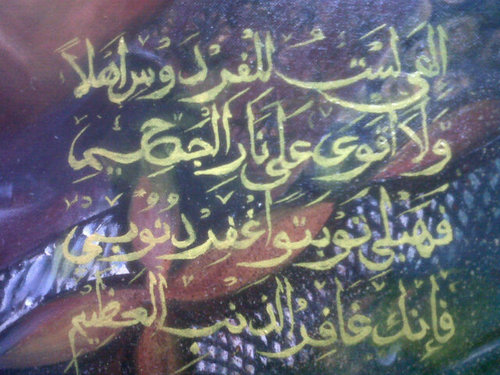 الهي لست للفردوس اهلاً
ولا أقوى على نار الجحيم
فهبلي توبتا واغفر ذنوبي
فإنك غافر الذنب العظيم